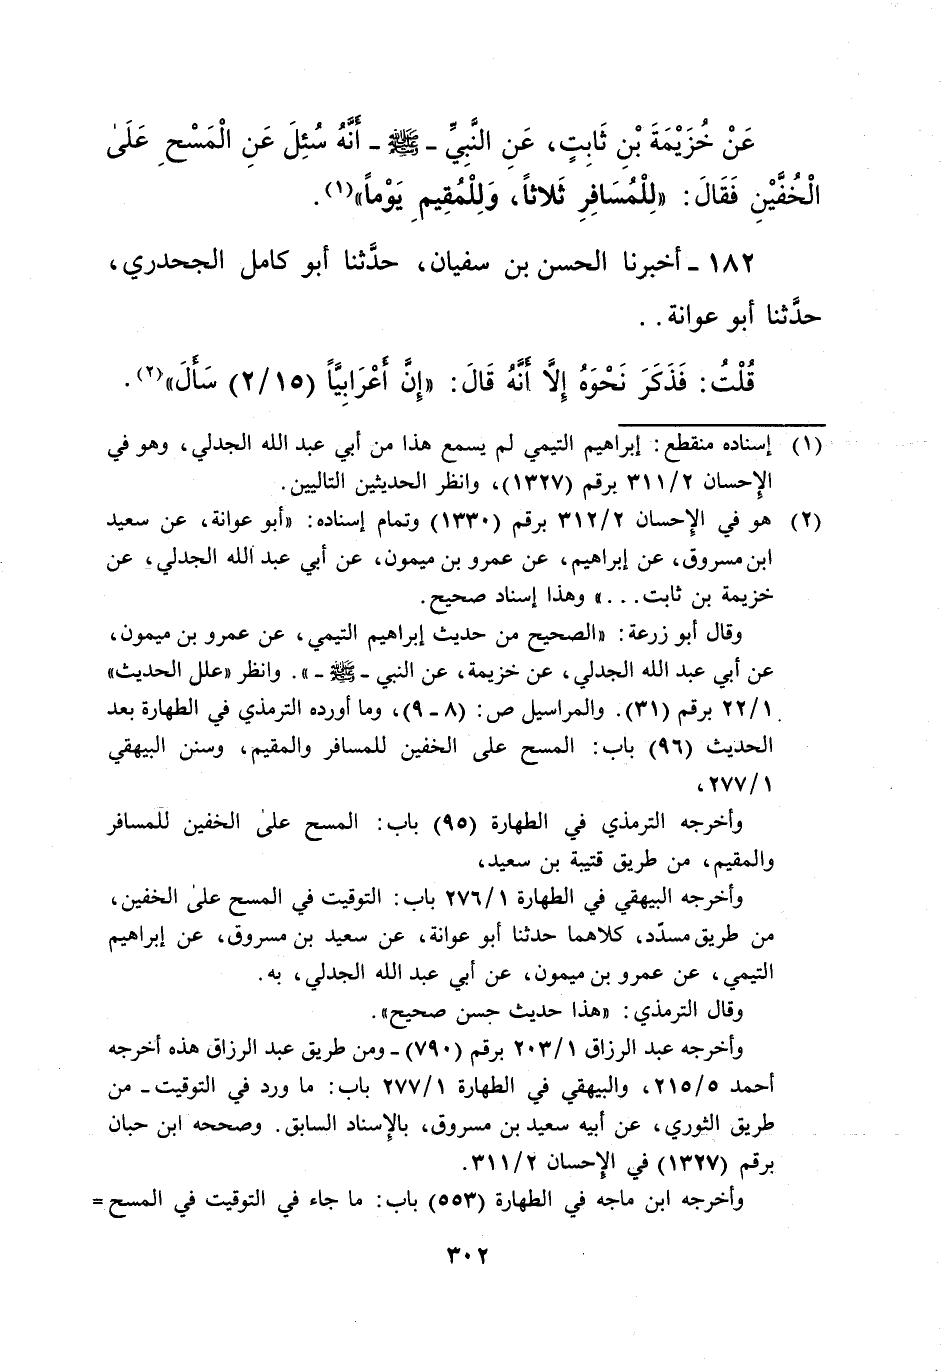 عَنْ خُزَيْمَةَ بْنِ ثَابِتٍ، عَنِ النَّبِيِّ ـ ﷺ ـ أَنَّهُ سُئِلَ عَنِ الْمَسْحِ عَلَىٰ
الْخُفَّيْنِ فَقَالَ: «لِلْمُسَافِرِ ثَلاثاً، وَلِلْمُقِيمِ يَوْماً»(١).
١٨٢ ـ أخبرنا الحسن بن سفيان، حدَّثنا أبو كامل الجحدري،
حدَّثنا أبو عوانة. .
قُلْتُ: فَذَكَرَ نَحْوَهُ إِلَّا أَنَّهُ قَالَ: «إِنَّ أَعْرَابِيَّاً (٢/١٥) سَأَلَ»(٢).
(١) إسناده منقطع: إبراهيم التيمي لم يسمع هذا من أبي عبد الله الجدلي، وهو في
الإحسان ٣١١/٢ برقم (١٣٢٧)، وانظر الحديثين التاليين.
(٢) هو في الإحسان ٣١٢/٢ برقم (١٣٣٠) وتمام إسناده: «أبو عوانة، عن سعيد
ابن مسروق، عن إبراهيم، عن عمرو بن ميمون، عن أبي عبد الله الجدلي، عن
خزيمة بن ثابت. . .» وهذا إسناد صحيح.
وقال أبو زرعة: «الصحيح من حديث إبراهيم التيمي، عن عمرو بن ميمون،
عن أبي عبد الله الجدلي، عن خزيمة، عن النبي ـ ﷺ ـ». وانظر «علل الحديث»
٢٢/١ برقم (٣١). والمراسيل ص: (٨ ـ ٩)، وما أورده الترمذي في الطهارة بعد
الحديث (٩٦) باب: المسح على الخفين للمسافر والمقيم، وسنن البيهقي
٢٧٧/١،
وأخرجه الترمذي في الطهارة (٩٥) باب: المسح علىٰ الخفين للمسافر
والمقيم، من طريق قتيبة بن سعيد،
وأخرجه البيهقي في الطهارة ٢٧٦/١ باب: التوقيت في المسح علىٰ الخفين،
من طريق مسدّد، كلاهما حدثنا أبو عوانة، عن سعيد بن مسروق، عن إبراهيم
التيمي، عن عمرو بن ميمون، عن أبي عبد الله الجدلي، به.
وقال الترمذي: «هذا حديث حسن صحيح».
وأخرجه عبد الرزاق ٢٠٣/١ برقم (٧٩٠) ـ ومن طريق عبد الرزاق هذه أخرجه
أحمد ٢١٥/٥، والبيهقي في الطهارة ٢٧٧/١ باب: ما ورد في التوقيت ـ من
طريق الثوري، عن أبيه سعيد بن مسروق، بالإسناد السابق. وصححه ابن حبان
برقم (١٣٢٧) في الإحسان ٣١١/٢.
وأخرجه ابن ماجه في الطهارة (٥٥٣) باب: ما جاء في التوقيت في المسح =
٣٠٢